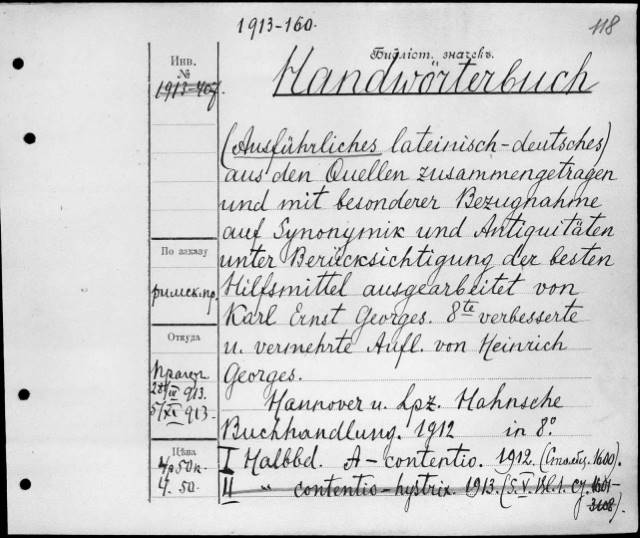 1913-160.
118
Инв.
№
1913-467.
Библіот. значекъ.
Handwörterbuch
(Ausführliches lateinisch-deutsches)
aus den Quellen zusammengetragen
und mit besonderer Bezugnahme
auf Synonymik und Antiquitäten
unter Berücksichtigung der besten
Hilfsmittel ausgearbeitet von
Karl Ernst Georges. 8te verbesserte
u. vermehrte Aufl. von Heinrich
Georges.
Hannover u. Lpz. Hahnsche
Buchhandlung. 1912 in 8°.
I Halbbd. A - contentio. 1912. (Столбц. 1600).
II " contentio - hystrix. 1913. (S. V. Bl. 1. Cj. 1601-
3108).
По заказу
римск.пр.
Откуда
913.
5/XI 913.
Цѣна
4р 50к.
4. 50.